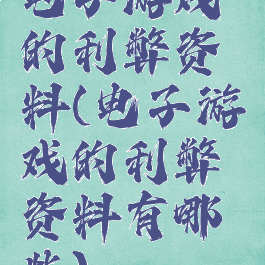 电子游戏
的利弊资
料(电子游
戏的利弊
资料有哪
些)